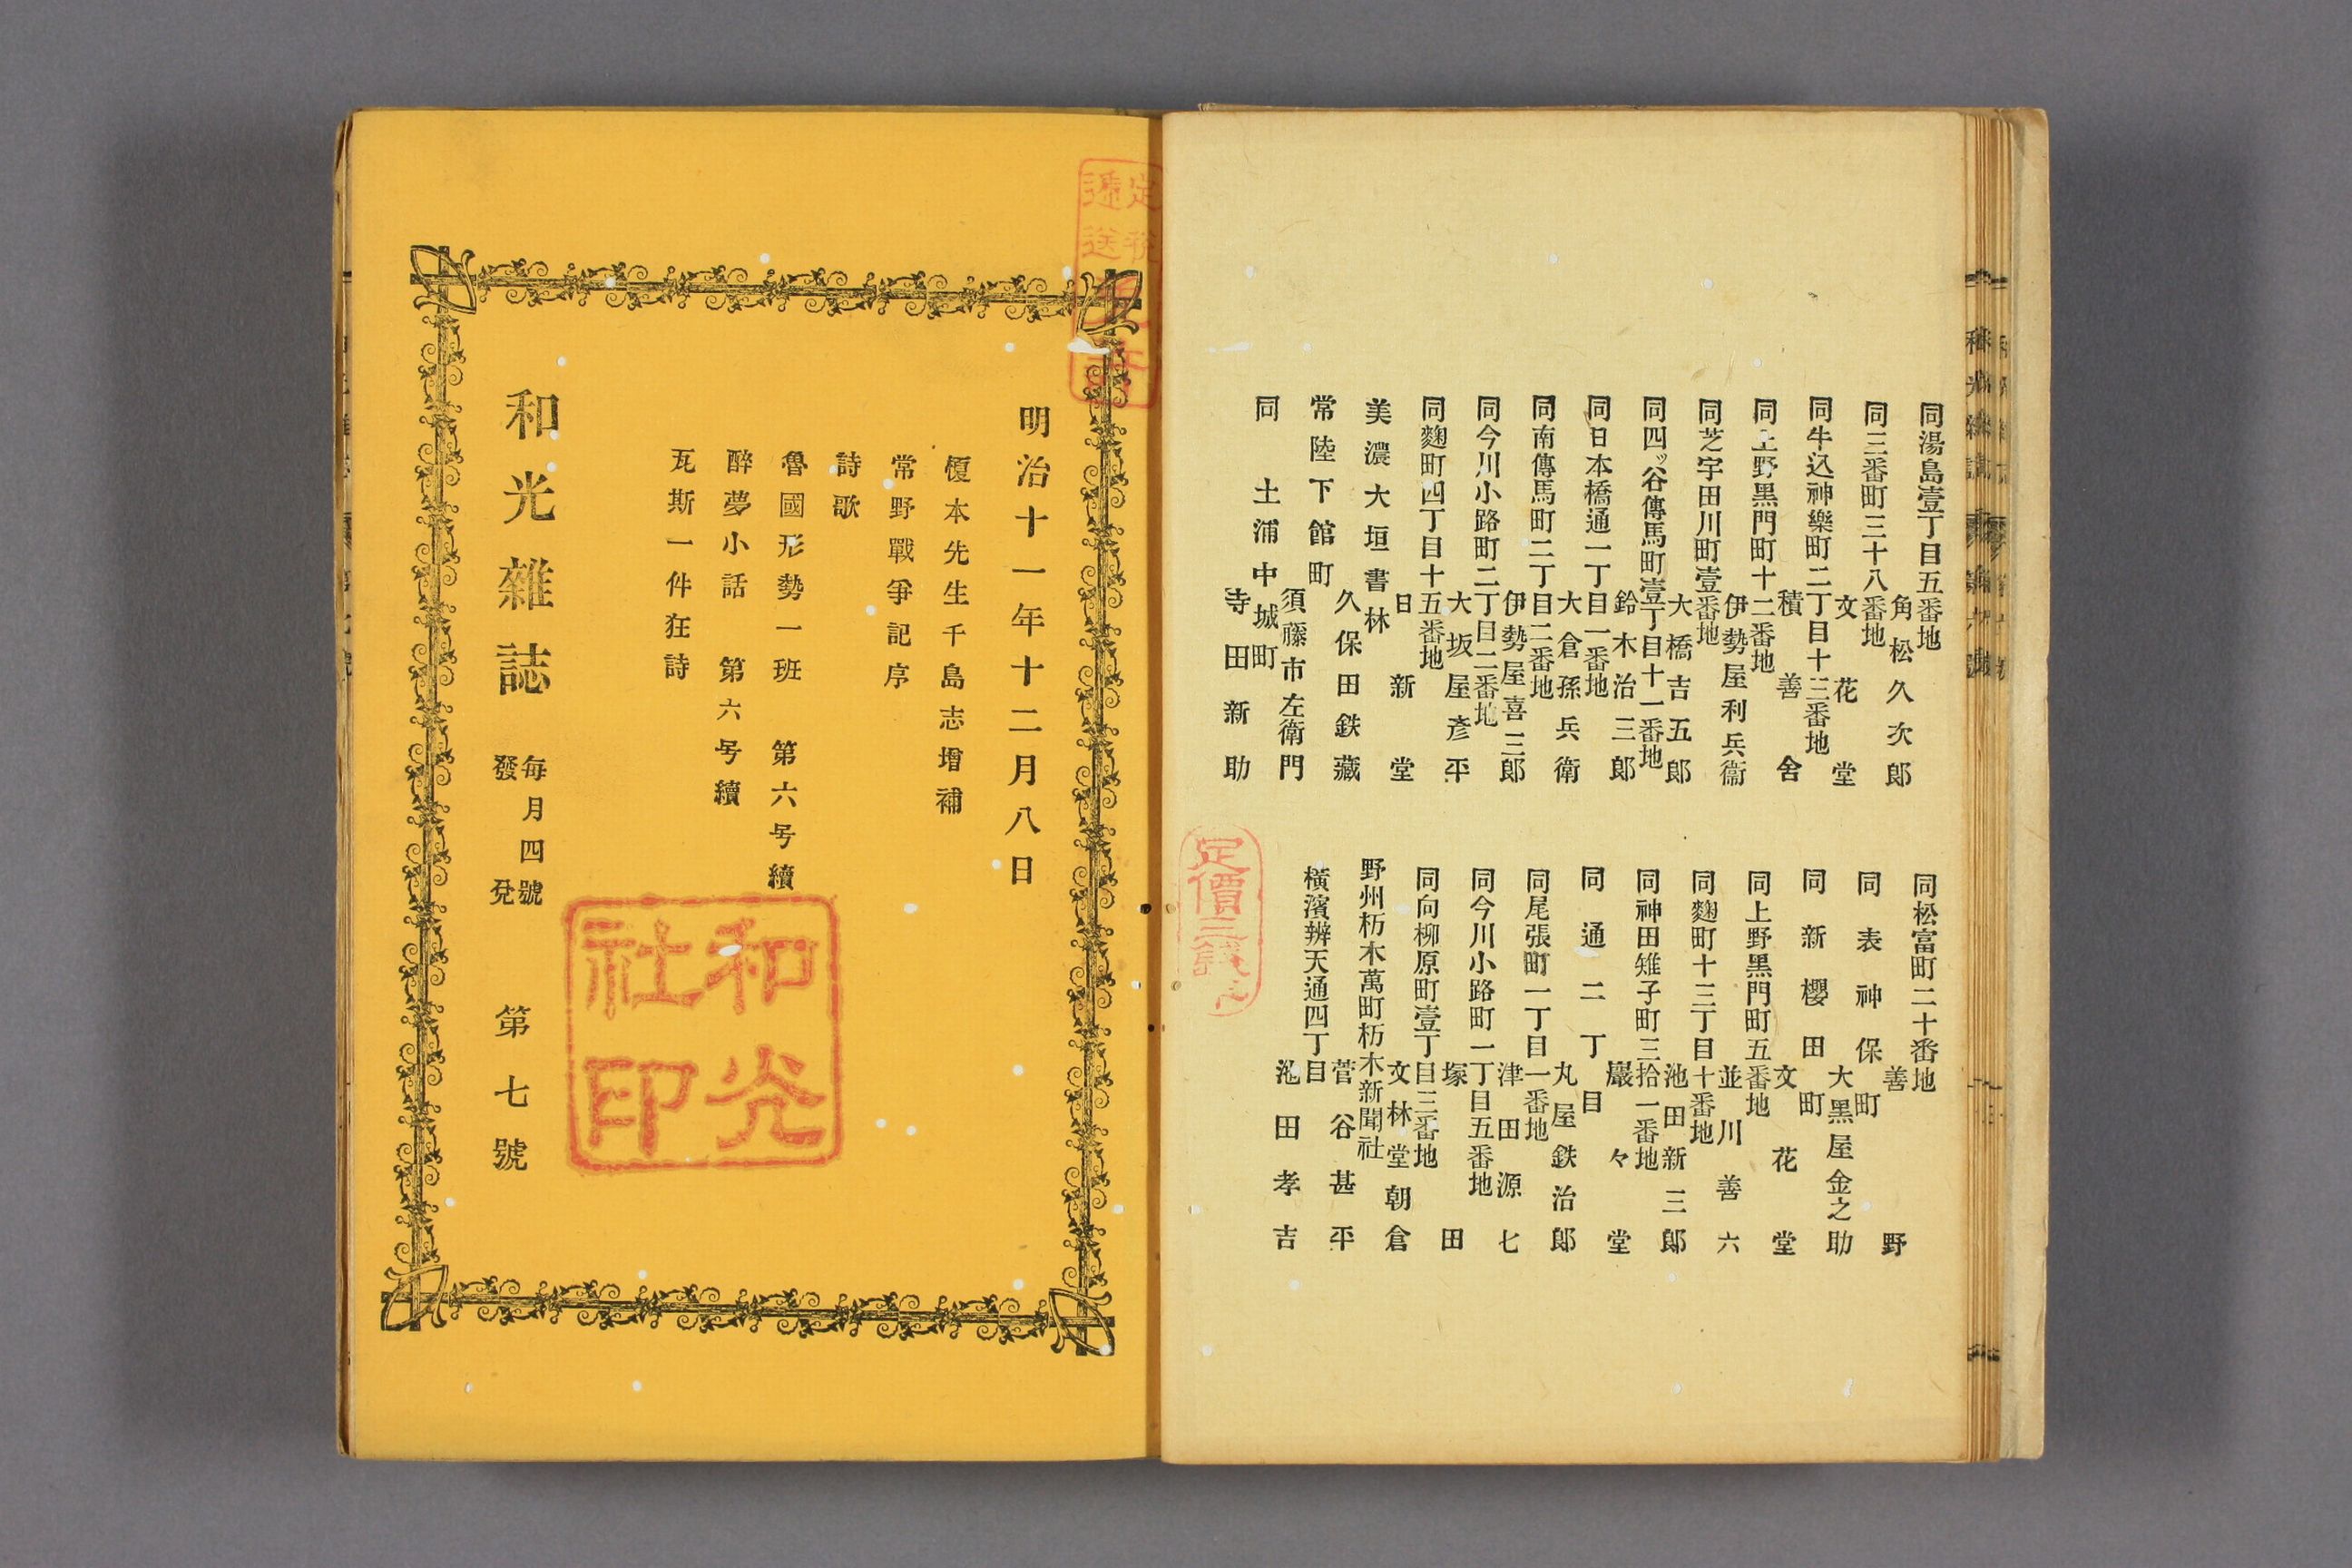 同湯島壹丁目五番地
角松久次郎
同三番町三十八番地
文花堂
同牛込神樂町二丁目十三番地
積善舍
同上野黒門町十二番地
伊勢屋利兵衞
同芝宇田川町壹番地
大橋吉五郎
同四ッ谷傳馬町壹丁目十一番地
鈴木治三郎
同日本橋通一丁目一番地
大倉孫兵衛
同南傳馬町二丁目二番地
伊勢屋喜三郎
同今川小路町二丁目二番地
大坂屋彦平
同麴町四丁目十五番地
日新堂
美濃大垣書林
久保田鉄藏
常陸下館町
須藤市左衛門
同土浦中城町
寺田新助
同松富町二十番地
善野
同表神保町
大黑屋金之助
同新櫻田町
文花堂
同上野黒門町五番地
並川善六
同麴町十三丁目十番地
池田新三郎
同神田雉子町三拾一番地
巖々堂
同通二丁目
丸屋鉄治郎
同尾張町一丁目一番地
津田源七
同今川小路町一丁目五番地
塚田
同向柳原町壹丁目三番地
文林堂朝倉
野州栃木萬町栃木新聞社
菅谷甚平
橫濱辨天通四丁目
池田孝吉
定價三錢
明治十一年十二月八日
榎本先生千島志增補
常野戰爭記序
詩歌
魯國形勢一班 第六号續
醉夢小話 第六号續
瓦斯一件狂詩
和光雜誌 每月四號發兌 第七號
和光
社印